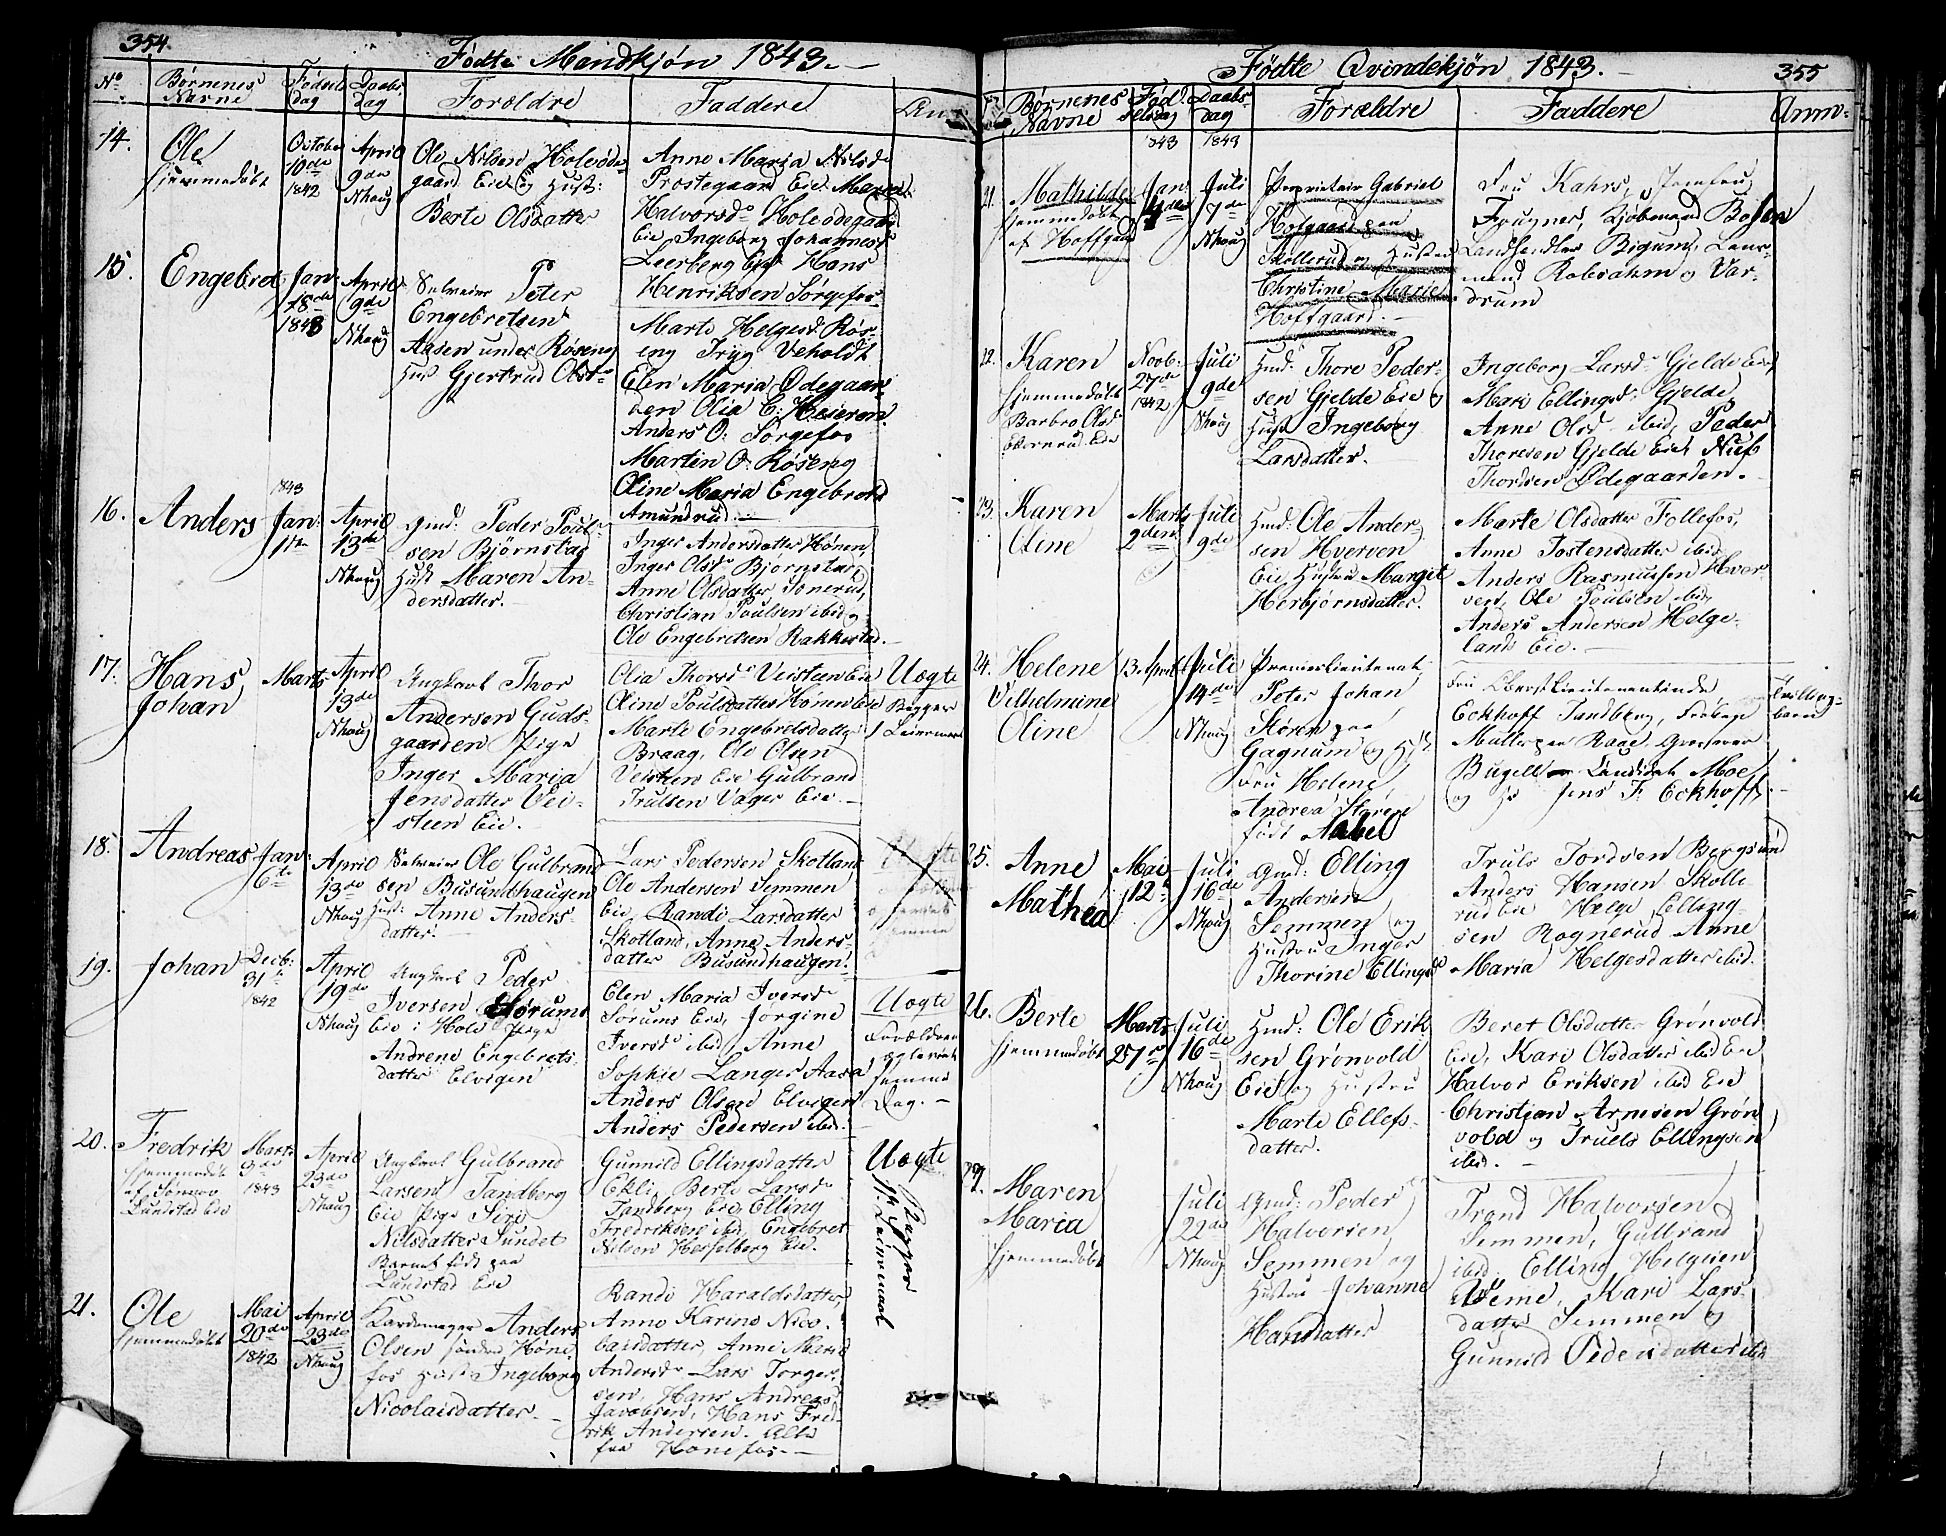 354.
Fødte Mandkjøn 1843.
No
Børnenes Navne
Fødsels dag
Daabs dag
Forældre
Faddere
14.
Ole
hjemmedøbt
October
10de
1842
April
9de
Nhoug
Ole Nilsen Holeøde-
gaard Eie og Hust:
Berte Olsdatter
Anne Maria Nilsd
Prostegaard Eie Maren
Halvorsd Holeødegaard
Eie, Ingeborg Johannesd
Leerberg Eie Hans
Henriksen Sørgefos
15.
Engebret
Jan:
18de
1843
April
9de
Nhoug
Peter
Engebretsen
Aasen under Røseng
Hust Gjertrud Olsd
Marte Helgesd: Røs-
eng
Elen Maria Ødegaar-
den Olia C: Heieren
Anders O: Sørgefos
Martin O: Røseng
Oline Maria Engebretsd
Amundrud
16.
Anders
1843
Jan:
1te
April
13de
Nhoug
Gmd: Peder Poul-
sen Bjørnstad
Hust Maren An-
dersdatter.
Inger Andersdatter Hønen,
Inger Olsd Bjørnstad,
Anne Olsdatter
Christian Poulsen ibid og
Ole Engebretsen Rakkestad.
17.
Hans
Johan
Marts
April
13de
Nhoug
Ungkarl Thor
Andersen Guds-
gaarden Pige
Inger Maria
Jensdatter Vei-
steen Eie.
Olia Thorsd Veisteen Eie
Oline Poulsdatter Hønen Eie
Marte Engebretsdatter
Braag, Ole Olsen
Veisteen Eie Gulbrand
Trulsen Vager Eie
Uægte
Begges
1 Leiermaal
18.
Andreas
Jan:
6te
April
13de
Nhoug
Ole Gulbrand
sen Busundhaugen
Hust: Anne Anders-
datter.
Lars Pedersen Skotland
Ole Andersen Semmen
Eie, Randi Larsdatter
Skotland, Anne Anders-
datter Busundhaugen.
19.
Johan
Decb:
31te
1842
April
19de
Nhoug
Ungkarl Peder
Iversen Sørums
Eie i Hole Pige
Andrene Engebrets-
datter Elvigen
Elen Maria Iversd
Sørums Eie, Jørgine
Iversd ibid, Anne
Sophie Langer Aasa
Anders Olsen Elvigen
Anders Pedersen ibid.
Uægte
Forældrene
samme
Dag.
20.
Fredrik
hjemmedøbt
Lundstad Eie
Marts
9de
1843
April
23de
Nhoug
Ungkarl Gulbrand
Larsen Tandberg
Eie Pige Siri
Nilsdatter Sundet
Barnet født paa
Lundstad Eie
Gunnild Ellingsdatter
Ekli, Berte Larsd
Tandberg Eie, Elling
Fredriksen ibid, Engebret
Nilsen Hesselberg Eie.
Uægte
Begges
Leiermaal
21.
Ole
hjemmedøbt
Mai
20de
1842
April
23de
Nhoug
Anders
Olsen søndre Høne
fos Hust Ingeborg
Nicolaisdatter
Randi Haraldsdatter,
Anne Karine Nico-
laisdatter, Anne Marie
Andersd Lars Torger-
sen, Hans Andreas
Jacobsen, Hans Fred-
rik Andersen. Alle
fra Hønefos.
Fødte Qvindekjøn 1843.
355
Børnenes Navne
Fødselsdag
Daabs dag
Forældre
Faddere
Anm:
1843
1843
21.
Mathilde
hjemmedøbt
af Hoffgaard
Jan:
Juli
7de
Nhoug
Proprietair Gabriel
Hofgaard paa
Skollerud og Hustru
Christine Marie
Hoffgaard.
Fru Kahrs, Jomfru
Frugner, Kjøbmand Boysen
Landhandler Bigum, Lens-
mand Robsahm og Var-
drum
22.
Karen
hjemmedøbt
Barbro Olsd
Novb:
27de
1842
Juli
9de
Nhoug
Hmd: Thore Peder-
sen Gjelde Eie og
Hust Ingeborg
Larsdatter.
Ingeborg Larsd Gjelde Eie,
Mari Ellingsd: Gjelde,
Anne Olsd ibid, Peder
Thoresen Gjelde Eie,
Thordsen Ødegaarden.
23.
Karen
Oline
Marts
9den
Juli
9de
Hmd: Ole Ander-
sen Hverven
Eie, Hustru Margit
Herbjørnsdatter.
Marte Olsdatter Follefos,
Anne Tostensdatter ibid
Anders Rasmussen Hver-
ven, Ole Poulsen ibid,
Anders Andersen Helge-
lands Eie.
24.
Helene
Vilhelmine
Oline
13. April
Juli
14de
Nhoug
Premierlieutenant
Peter Johan
Støren paa
Gagnum og Hst
Fru Helene
Andrea Støren
født Aabel
Fru Oberstlieutenantinde
Eckhoff Tandberg, Frøken
Møller paa Raae, Grosserer
Bugell Candidat Moe
og Hr Jens F. Eckhoff.
Tvilling-
barn
25.
Anne
Mathea
Mai
12te
Juli
16de
Nhoug
Gmd: Elling
Andersen
Semmen og
Hustru Inger
Thorine Ellingsd
Truls Tordsen Bergsund
Anders Hansen Skolle-
rud Eie Helge Elling-
sen Rognerud Anne
Maria Helgesdatter ibid.
26.
Berte
hjemmedøbt
Marts
25
Juli
16de
Nhoug
Hmd: Ole Erik
sen Grønvold
Eie og Hustru
Marte Ellefs-
datter.
Beret Olsdatter Grønvold
Eie, Kari Olsdatter ibid Eie
Halvor Eriksen ibid Eie
Christian Arnesen Grøn
vold og Truels Ellingsen
ibid.
27.
Maren
Maria
hjemmedøbt
Juli
22de
Nhoug
Gmd: Peder
Halvorsen
Semmen og
Hustru Johanne
Hansdatter
Trond Halvorsen
Semmen, Gulbrand
ibid. Elling Helgesen
Veme, Kari Lars-
datter Semmen og
Gunnild Pedersdatter ibid